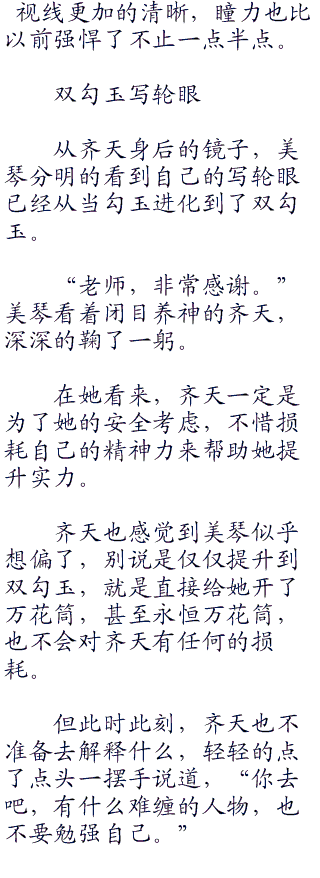 视线更加的清晰，瞳力也比
以前强悍了不止一点半点。
双勾玉写轮眼
从齐天身后的镜子，美
琴分明的看到自己的写轮眼
已经从当勾玉进化到了双勾
玉。
“老师，非常感谢。”
美琴看着闭目养神的齐天，
深深的鞠了一躬。
在她看来，齐天一定是
为了她的安全考虑，不惜损
耗自己的精神力来帮助她提
升实力。
齐天也感觉到美琴似乎
想偏了，别说是仅仅提升到
双勾玉，就是直接给她开了
万花筒，甚至永恒万花筒，
也不会对齐天有任何的损
耗。
但此时此刻，齐天也不
准备去解释什么，轻轻的点
了点头一摆手说道，“你去
吧，有什么难缠的人物，也
不要勉强自己。”